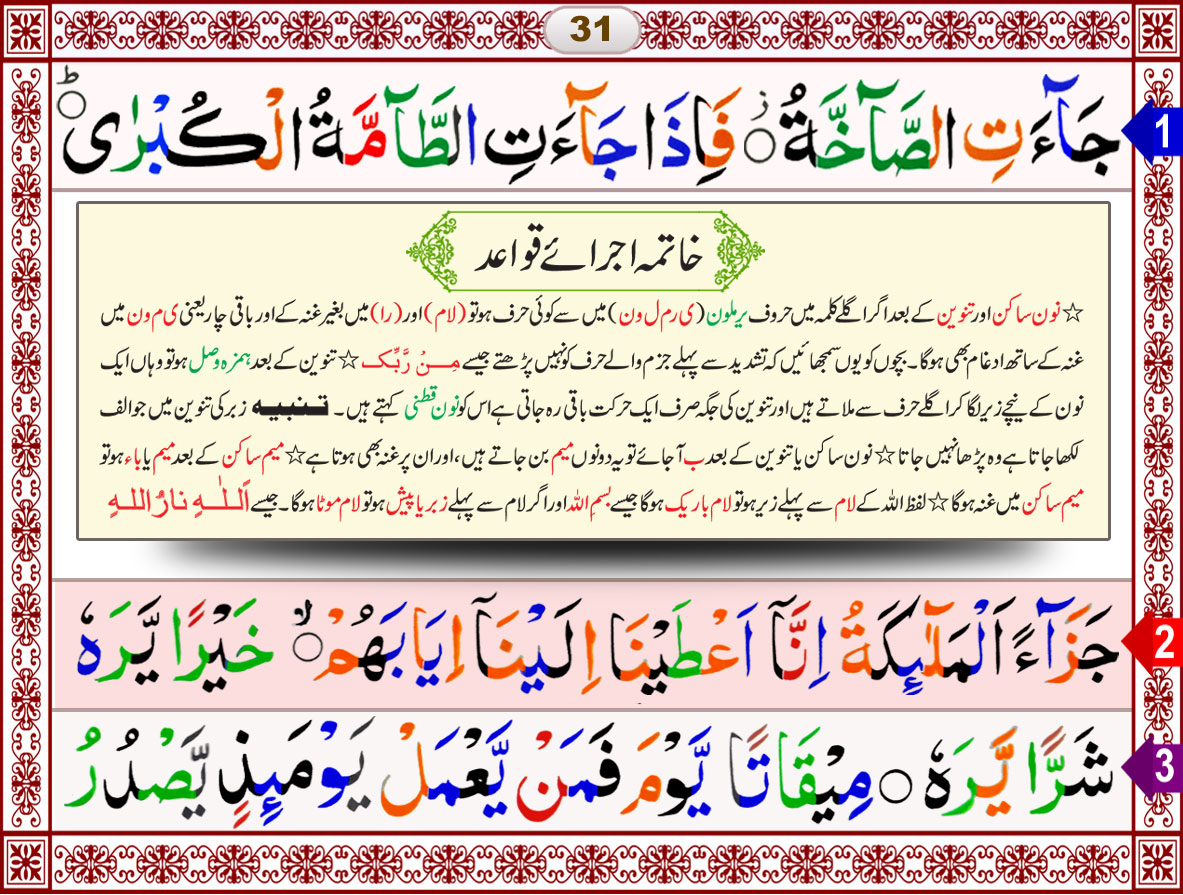 31
جَآءَتِ الصَّآخَّةُ ۝ ز فَاِذَا جَآءَتِ الطَّآمَّةُ الْكُبْرٰى ۝ ط
1
خاتمہ اجرائے قواعد
☆ نون ساکن اور تنوین کے بعد اگر اگلے کلمہ میں حروف یرملون (ی ر م ل و ن) میں سے کوئی حرف ہو تو (لام) اور (را) میں بغیر غنہ کے اور باقی چار یعنی ی م و ن میں
غنہ کے ساتھ ادغام بھی ہوگا۔ بچوں کو یوں سمجھائیں کہ تشدید سے پہلے جزم والے حرف کو نہیں پڑھتے جیسے مِنْ رَّبِّکَ ☆ تنوین کے بعد ہمزہ وصل ہو تو وہاں ایک
نون کے نیچے زیر لگا کر اگلے حرف سے ملاتے ہیں اور تنوین کی جگہ صرف ایک حرکت باقی رہ جاتی ہے اس کو نون قطنی کہتے ہیں۔ تنبیہ زبر کی تنوین میں جو الف
لکھا جاتا ہے وہ پڑھا نہیں جاتا ☆ نون ساکن یا تنوین کے بعد ب آ جائے تو یہ دونوں میم بن جاتے ہیں، اور ان پر غنہ بھی ہوتا ہے ☆ میم ساکن کے بعد میم یا باء ہو تو
میم ساکن میں غنہ ہوگا ☆ لفظ اللہ کے لام سے پہلے زیر ہو تو لام باریک ہوگا جیسے بسم اللہ اور اگر لام سے پہلے زبر یا پیش ہو تو لام موٹا ہوگا۔ جیسے اَللہِ نارُ اللہِ
جَزَآءً اَلْمَلٰٓئِكَةُ اِنَّآ اَعْطَيْنَا اِلَيْنَآ اِيَابَهُمْ ۝ لا خَيْرًا يَّرَهٗ
2
شَرًّا يَّرَهٗ ۝ مِيْقَاتًا يَّوْمَ فَمَنْ يَّعْمَلْ يَوْمَئِذٍ يَّصْدُرُ
3